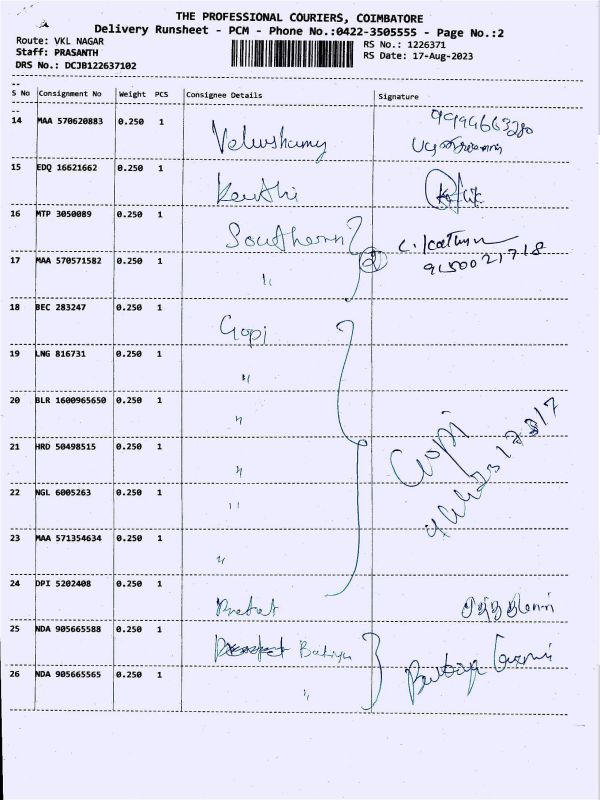 THE PROFESSIONAL COURIERS, COIMBATORE
Delivery Runsheet - PCM - Phone No.:0422-3505555 - Page No.:2
Route: VKL NAGAR
RS No.: 1226371
Staff: PRASANTH
RS Date: 17-Aug-2023
DRS No.: DCJB122637102
S No Consignment No Weight PCS Consignee Details Signature
14 MAA 570620883 0.250 1 Velushamy
15 EDQ 16621662 0.250 1 Keuthi
16 MTP 3050089 0.250 1 Southern
17 MAA 570571582 0.250 1 〃 2
18 BEC 283247 0.250 1 Gopi
19 LNG 816731 0.250 1 〃
20 BLR 1600965650 0.250 1 〃
21 HRD 50498515 0.250 1 〃 Gopi
22 NGL 6005263 0.250 1 〃
23 MAA 571354634 0.250 1 〃
24 DPI 5202408 0.250 1
25 NDA 905665588 0.250 1
26 NDA 905665565 0.250 1 〃